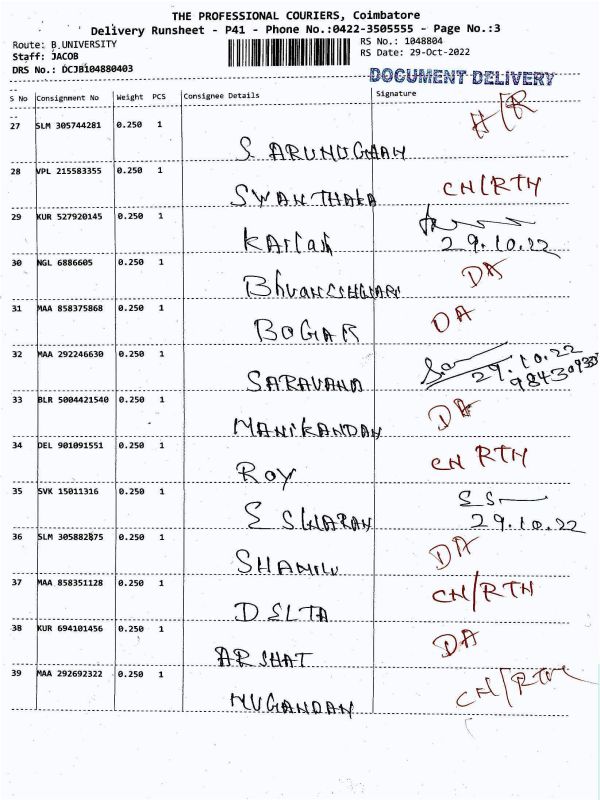 THE PROFESSIONAL COURIERS, Coimbatore
Delivery Runsheet - P41 - Phone No.:0422-3505555 - Page No.:3
Route: B.UNIVERSITY
RS No.: 1048804
Staff: JACOB
RS Date: 29-Oct-2022
DRS No.: DCJB104880403
DOCUMENT DELIVERY
S No Consignment No Weight PCS Consignee Details Signature
27 SLM 305744281 0.250 1
S ARUMUGHAM
28 VPL 215583355 0.250 1
SWANTHAKA CN/RTH
29 KUR 527920145 0.250 1
Kailash 29.10.22
30 NGL 6886605 0.250 1
DA
31 MAA 858375868 0.250 1
BOGAR DA
32 MAA 292246630 0.250 1
SARAVANA 29.10.22
33 BLR 5004421540 0.250 1
MANIKANDAN DA
34 DEL 901091551 0.250 1
ROY CN RTH
35 SVK 15011316 0.250 1
ESWARAN 29.10.22
36 SLM 305882875 0.250 1
DA
37 MAA 858351128 0.250 1
DELTA CN/RTH
38 KUR 694101456 0.250 1
ARSHAT DA
39 MAA 292692322 0.250 1
MUGANDAN CN/RTH